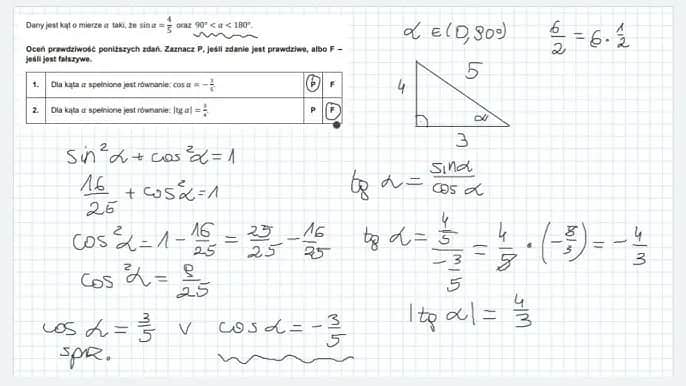 Dany jest kąt o mierze α taki, że sin α = 4/5 oraz 90° < α < 180°.
Oceń prawdziwość poniższych zdań. Zaznacz P, jeśli zdanie jest prawdziwe, albo F –
jeśli jest fałszywe.
1. Dla kąta α spełnione jest równanie: cos α = −3/5 P F
2. Dla kąta α spełnione jest równanie: |tg α| = 3/4 P F
α ∈ (0, 90°)
6/2 = 6 · 1/2
4
5
α
3
sin²α + cos²α = 1
16/25 + cos²α = 1
cos²α = 1 − 16/25 = 25/25 − 16/25
cos²α = 9/25
cos α = 3/5 v cos α = −3/5
spr.
tg α = sinα/cos α
tg α = 4/5 / −3/5 = 4/5 · (−5/3) = −4/3
|tg α| = 4/3